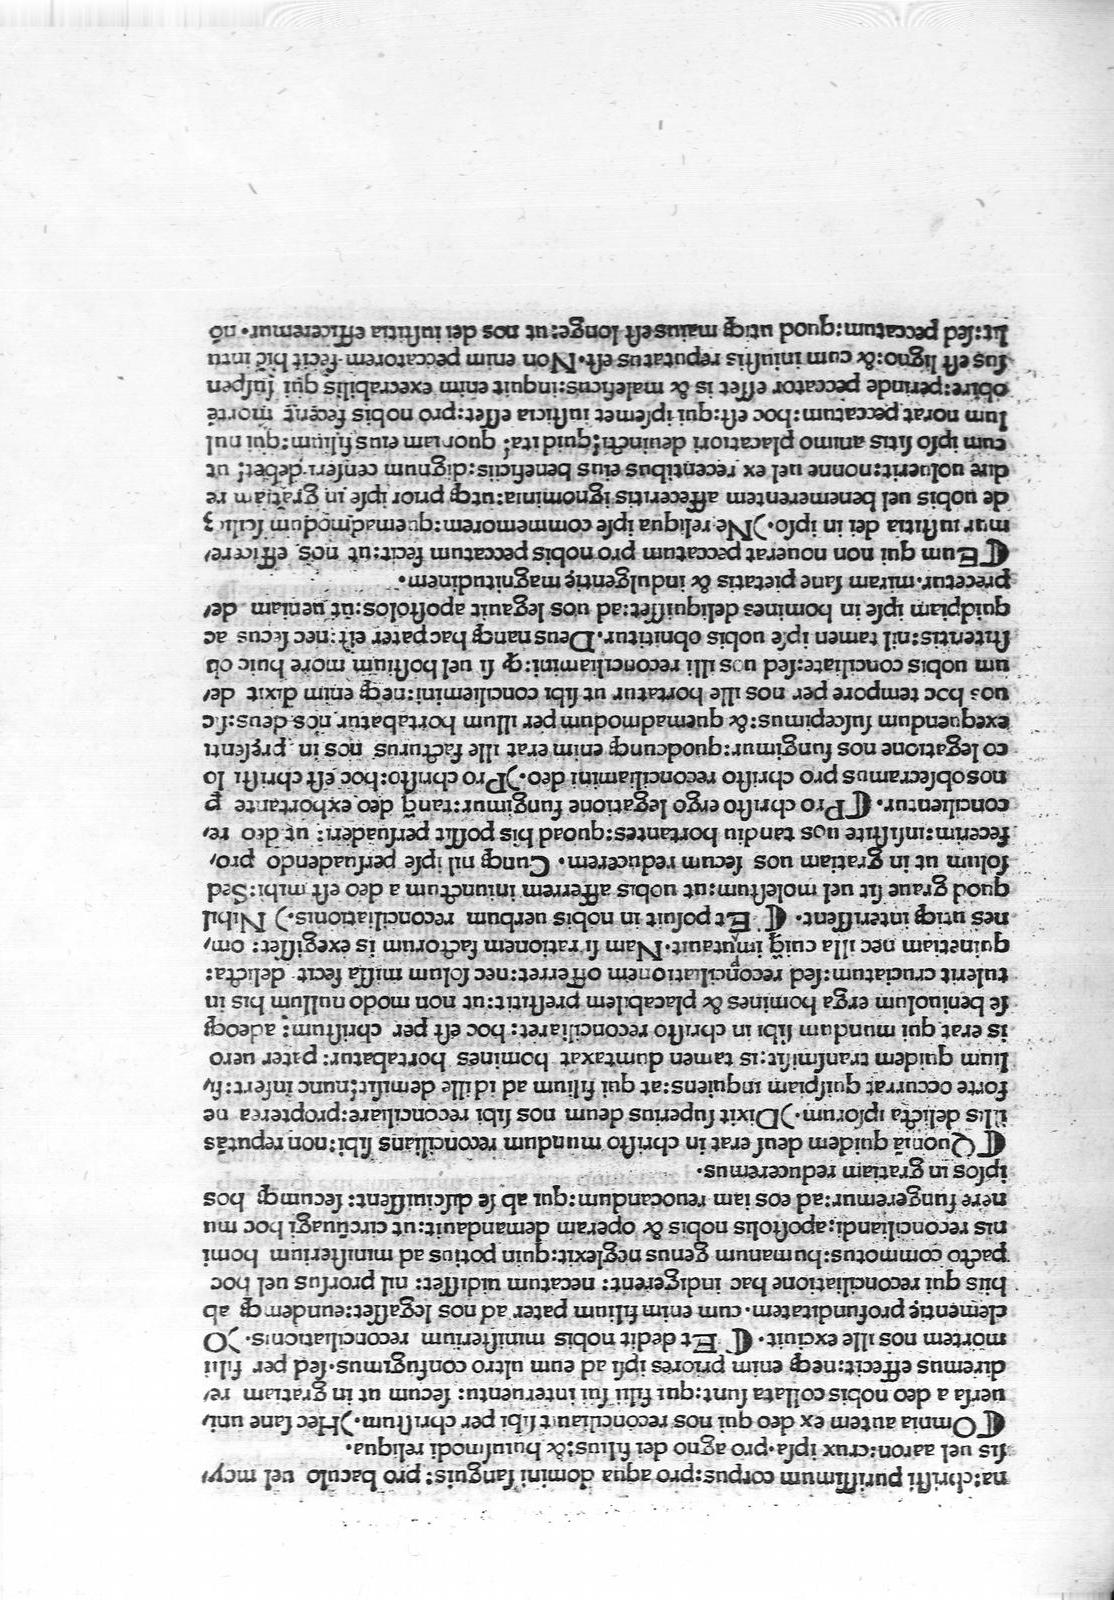 na:christi purissimum corpus:pro aqua domini sanguis: pro baculo uel moy,
sis uel aaron:crux ipsa.pro agno dei filius:& huiusmodi reliqua.
⸿Omnia autem ex deo qui nos reconciliauit sibi per christum.)Hec sane uni,
uersa a deo nobis collata sunt:qui filii sui interuentu: secum ut in gratiam re,
diremus effecit:neqꝫ enim priores ipsi ad eum ultro confugimus.sed per filii
mortem nos ille exciuit. ⸿ Et dedit nobis ministerium reconciliationis.)O
clementię profunditatem.cum enim filium pater ad nos legasset:eundemqꝫ ab
hiis qui reconciliatione hac indigerent: necatum uidisset: nil prorsus uel hoc
pacto commotus:humanum genus neglexit:quin potius ad ministerium homi
nis reconciliandi:apostolis nobis & operam demandauit:ut circūuagi hoc mu
nere fungeremur:ad eos iam reuocandum:qui ab se desciuissent: secumqꝫ hos
ipsos in gratiam reduceremus.
⸿Quoniā quidem deus erat in christo mundum reconcilians sibi:non reputās
illis delicta ipsorum.)Dixit superius deum nos sibi reconciliare:propterea ne
forte occurrat quispiam inquiens:at qui filium ad id ille demisit:nunc infert:fi,
lium quidem transmisit:is tamen dumtaxat homines hortabatur: pater uero
is erat qui mundum sibi in christo reconciliaret: hoc est per christum: adeoqꝫ
se beniuolum erga homines & placabilem prestitit:ut non modo nullum his in
tulerit cruciatum:sed reconciliationem offerret:nec solum missa fecit delicta:
quinetiam nec illa cuiqꝫ imputauit.Nam si rationem factorum is exegisset: om,
nes utiqꝫ interissent. ⸿ Et posuit in nobis uerbum reconciliationis.) Nihil
quod graue sit uel molestum:ut uobis afferrem iniunctum a deo est mihi:Sed
solum ut in gratiam uos secum reducerem. Cunqꝫ nil ipse persuadendo pro,
fecerim:insistite uos tandiu hortantes:quoad his possit persuaderi: ut deo re,
concilientur. ⸿Pro christo ergo legatione fungimur:tanqꝫ deo exhortante ꝑ
nos obsecramus pro christo reconciliamini deo.)Pro christo:hoc est christi lo
co legatione nos fungimur:quodcunqꝫ enim erat ille facturus nos in pręsenti
exequendum suscepimus:& quemadmodum per illum hortabatur nos deus:sic
nos hoc tempore per nos ille hortatur ut sibi conciliemini:neqꝫ enim dixit de,
um uobis conciliate:sed uos illi reconciliamini:qꝫ si uel hostium more huic ob
sistentis:nil tamen ipse uobis obnititur.Deus nanqꝫ hac pater est:nec secus ac
quidpiam ipse in homines deliquisset:ad uos legauit apostolos:ut ueniam de,
precetur.miram sane pietatis & indulgentię magnitudinem.
⸿Eum qui non nouerat peccatum pro nobis peccatum fecit:ut nos, efficere,
mur iustitia dei in ipso.)Ne reliqua ipse commemorem:quemadmodum
de uobis uel benemerentem affeceritis ignominia:utqꝫ prior ipse in gratiam re
dire uoluerit:nonne uel ex recentibus eius beneficiis:dignum censeri debet: ut
cum ipso sitis animo placatiori deuincti:quid ita: quoniam eius filium:qui nul
lum norat peccatum:hoc est:qui ipsemet iusticia esset:pro nobis fecerit mortē
obire:perinde peccator esset is & maleficus:inquit enim execrabilis qui suspen
sus est ligno:& cum iniustis reputatus est.Non enim peccatorem fecit hic intu
lit:sed peccatum:quod utiqꝫ maius est longe:ut nos dei iustitia efficeremur.nō